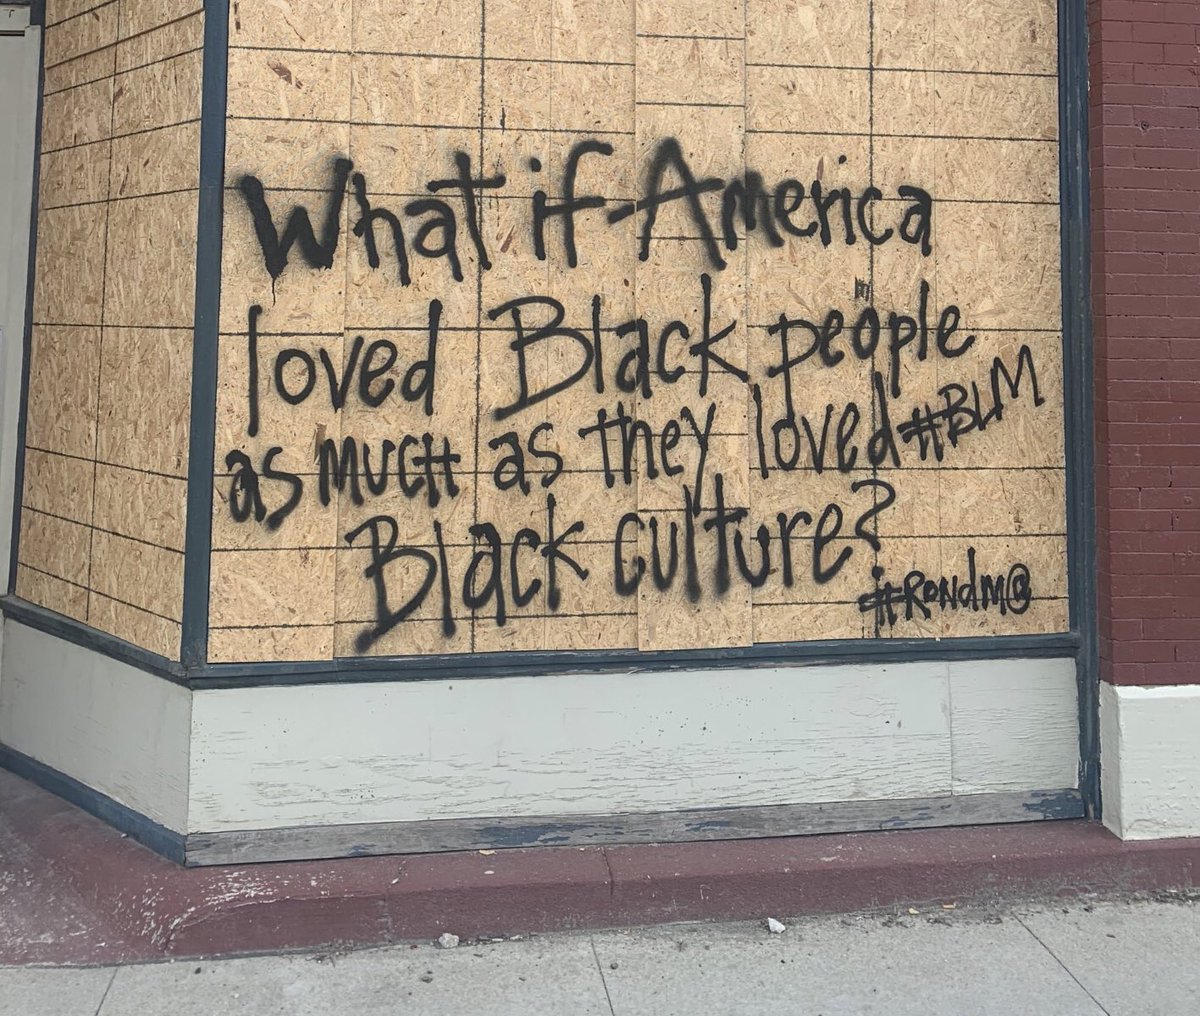 What if America
loved Black people
as much as they loved #BLM
Black culture?
#RondM@